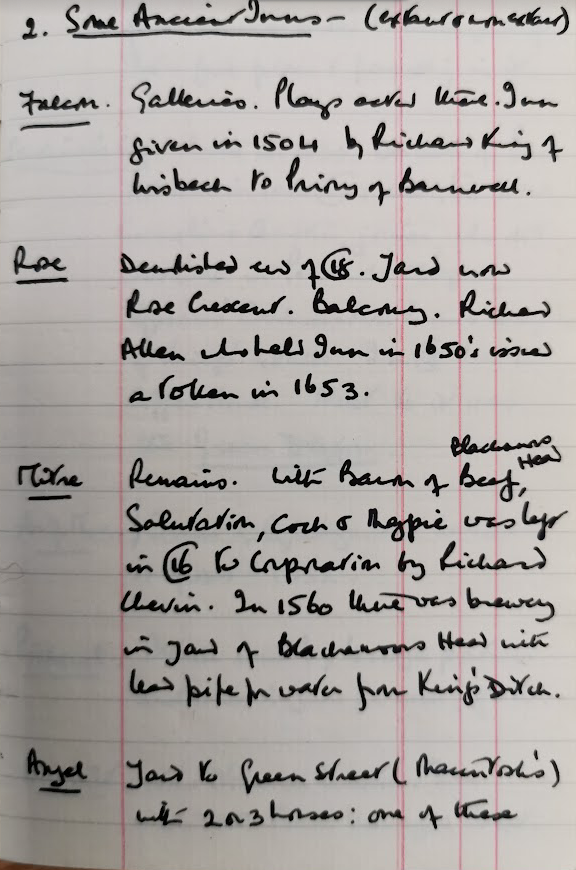 2. Some Ancient Inns - (extant or non extant)
Falcon. Galleries. Plays acted there. Inn
given in 1504 by Richard King of
Wisbech to Priory of Barnwell.
Rose Demolished end of 18. Yard now
Rose Crescent. Balcony. Richard
Allen who held Inn in 1650's issued
a token in 1653.
Mitre Remains. With Baron of Beef, Blackamoors Head
Salutation, Cock & Magpie was left
in 16 to Corporation by Richard
Chevin. In 1560 there was brewery
in yard of Blackamoors Head with
lead pipe for water from King's Ditch.
Angel Yard to Green Street (Macintosh's)
with 2 or 3 horses: one of these